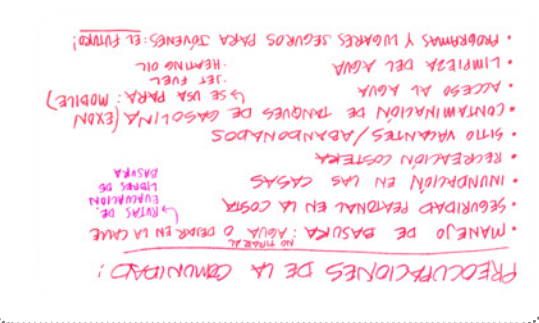 PREOCUPACIONES DE LA COMUNIDAD:
• MANEJO DE BASURA: AGUA O DEJAR EN LA CALLE
NO TIRAR AL
• SEGURIDAD PEATONAL EN LA COSTA
↳ RUTAS DE
EVACUACION
LIBRES DE
BASURA
• INUNDACIÓN EN LAS CASAS
• RECREACIÓN COSTERA
• SITIO VACANTES/ABANDONADOS
• CONTAMINACIÓN DE TANQUES DE GASOLINA (EXON
↳ SE USA PARA: MOBILE)
• JET FUEL
• HEATING OIL
• ACCESO AL AGUA
• LIMPIEZA DEL AGUA
• PROGRAMAS Y LUGARES SEGUROS PARA JÓVENES: EL FUTURO!